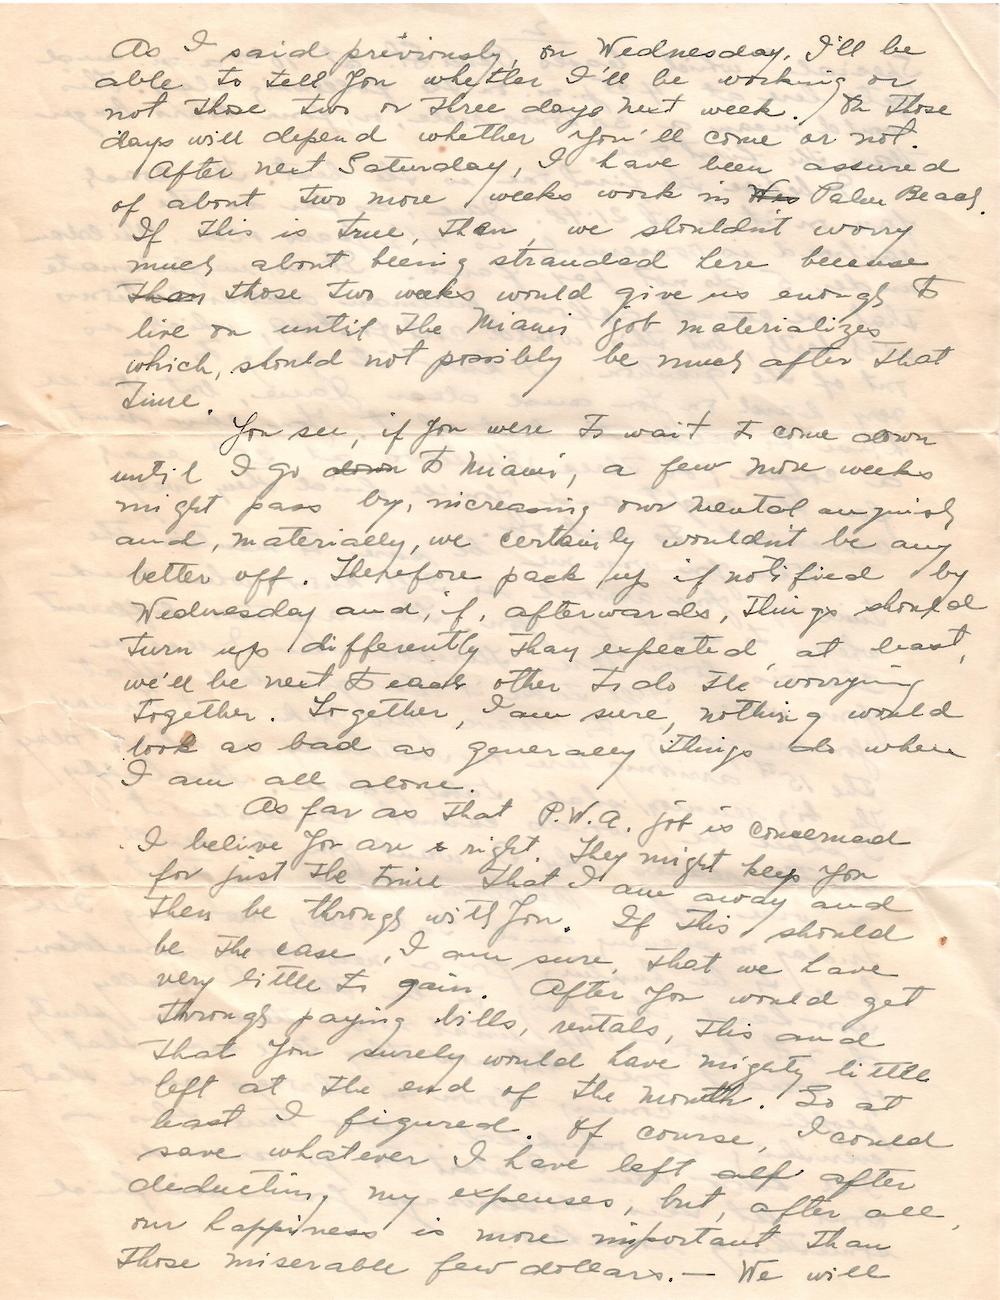 As I said previously, on Wednesday, I'll be
able to tell you whether I'll be working or
not those two or three days next week. On those
days will depend whether you'll come or not.
After next Saturday, I have been assured
of about two more weeks work in Palm Beach.
If this is true, then, we shouldn't worry
much about being stranded here because
than those two weeks would give us enough to
live on until the Miami job materializes
which, should not possibly be much after that
time.
You see, if you were to wait to come down
until I go down to Miami, a few more weeks
might pass by, increasing our mental anguish
and, materially, we certainly wouldn't be any
better off. Therefore pack up if notified by
Wednesday and, if, afterwards, things should
turn up differently than expected, at least,
we'll be next to each other to do the worrying
together. Together, I am sure, nothing would
look as bad as generally things do when
I am all alone.
As far as that P.W.A. job is concerned
I belive you are right. They might keep you
for just the time that I am away and
then be through with you. If this should
be the case, I am sure, that we have
very little to gain. After you would get
through paying bills, rentals, this and
that you surely would have mighty little
left at the end of the month. So at
least I figured. Of course, I could
save whatever I have left after
deducting my expenses, but, after all,
our happiness is more important than
those miserable few dollars.— We will